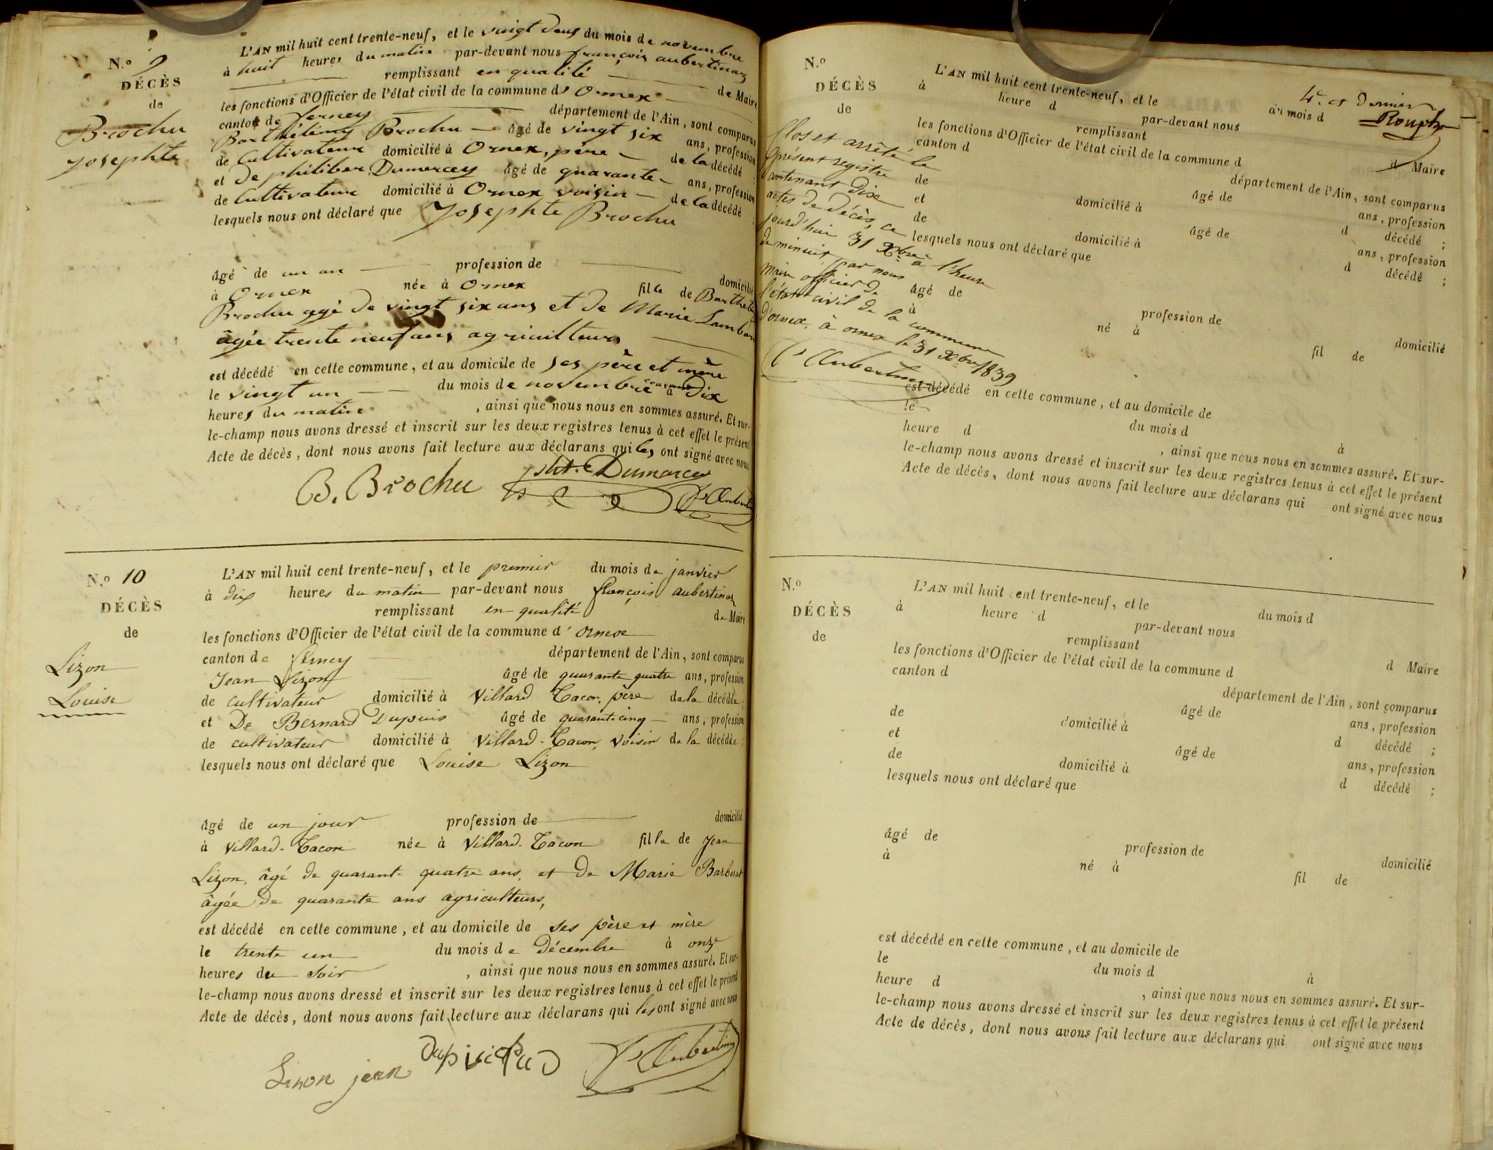 N.º 9
DÉCÈS
de
Brochu
Josephte
L'AN mil huit cent trente-neuf, et le vingt deux du mois de novembre
à huit heures du matin par-devant nous françois aubertinaz
remplissant en qualité de Maire
les fonctions d'Officier de l'état civil de la commune d' Ornex
canton de ferney département de l'Ain, sont comparus
Barthélémy Brochu âgé de vingt six ans, profession
de Cultivateur domicilié à Ornex, père de la décédé
et de philiber Dumarcey âgé de quarante ans, profession
de Cultivateur domicilié à Ornex voisin de la décédé
lesquels nous ont déclaré que Josephte Brochu
âgé de un an profession de domicilié
à Ornex née à Ornex fille de Barthele
Brochu agé de vingt six ans et de Marie Lambert
âgée trente neuf ans agriculteurs
est décédé en cette commune, et au domicile de ses père et mère
le vingt un du mois de novembre courant à dix
heures du matin , ainsi que nous nous en sommes assuré. Et sur-
le-champ nous avons dressé et inscrit sur les deux registres tenus à cet effet le présent
Acte de décès, dont nous avons fait lecture aux déclarans qui les ont signé avec nous
B. Brochu phit. Dumarcey fs Aubertin
N.º 10
DÉCÈS
de
Lizon
Louise
L'AN mil huit cent trente-neuf, et le premier du mois de janvier
à dix heures du matin par-devant nous françois aubertinaz
remplissant en qualité de Maire
les fonctions d'Officier de l'état civil de la commune d' ornex
canton de ferney département de l'Ain, sont comparus
Jean Lizon âgé de quarante quatre ans, profession
de cultivateur domicilié à Villard Tacon, père de la décédée ;
et De Bernard Dupuis âgé de quarantecinq ans, profession
de cultivateur domicilié à Villard-Tacon, voisin de la décédée ;
lesquels nous ont déclaré que Louise Lizon
âgé de un jour profession de domicilié
à Villard-Tacon née à Villard-Tacon fille de Jean
Lizon, âgé de quarante quatre ans, et de Marie Barbant
âgée de quarante ans agriculteurs,
est décédé en cette commune, et au domicile de ses père et mère
le trente un du mois de Décembre à onze
heures du soir , ainsi que nous nous en sommes assuré. Et sur-
le-champ nous avons dressé et inscrit sur les deux registres tenus à cet effet le présent
Acte de décès, dont nous avons fait lecture aux déclarans qui les ont signé avec nous
Lison jean fs Aubertin
4e. et dernier
Rouph
N.º
DÉCÈS
de
Clos et arrêté le
présent registre
contenant dix
actes de décès, ce
jourd'hui 31 Xbre à l'heure
de minuit par nous
maire officier de
l'état civil de la commune
d'ornex. à ornex le 31 Xbre 1839
fs Aubertin
L'AN mil huit cent trente-neuf, et le du mois d
à heure d par-devant nous
remplissant d Maire
les fonctions d'Officier de l'état civil de la commune d
canton d département de l'Ain, sont comparus
âgé de ans, profession
de domicilié à d décédé ;
et âgé de ans, profession
de domicilié à d décédé ;
lesquels nous ont déclaré que
âgé de profession de domicilié
à né à fil de
est décédé en cette commune, et au domicile de
le du mois d à
heure d , ainsi que nous nous en sommes assuré. Et sur-
le-champ nous avons dressé et inscrit sur les deux registres tenus à cet effet le présent
Acte de décès, dont nous avons fait lecture aux déclarans qui ont signé avec nous
N.º
DÉCÈS
de
L'AN mil huit cent trente-neuf, et le du mois d
à heure d par-devant nous
remplissant d Maire
les fonctions d'Officier de l'état civil de la commune d
canton d département de l'Ain, sont comparus
âgé de ans, profession
de domicilié à d décédé ;
et âgé de ans, profession
de domicilié à d décédé ;
lesquels nous ont déclaré que
âgé de profession de domicilié
à né à fil de
est décédé en cette commune, et au domicile de
le du mois d à
heure d , ainsi que nous nous en sommes assuré. Et sur-
le-champ nous avons dressé et inscrit sur les deux registres tenus à cet effet le présent
Acte de décès, dont nous avons fait lecture aux déclarans qui ont signé avec nous